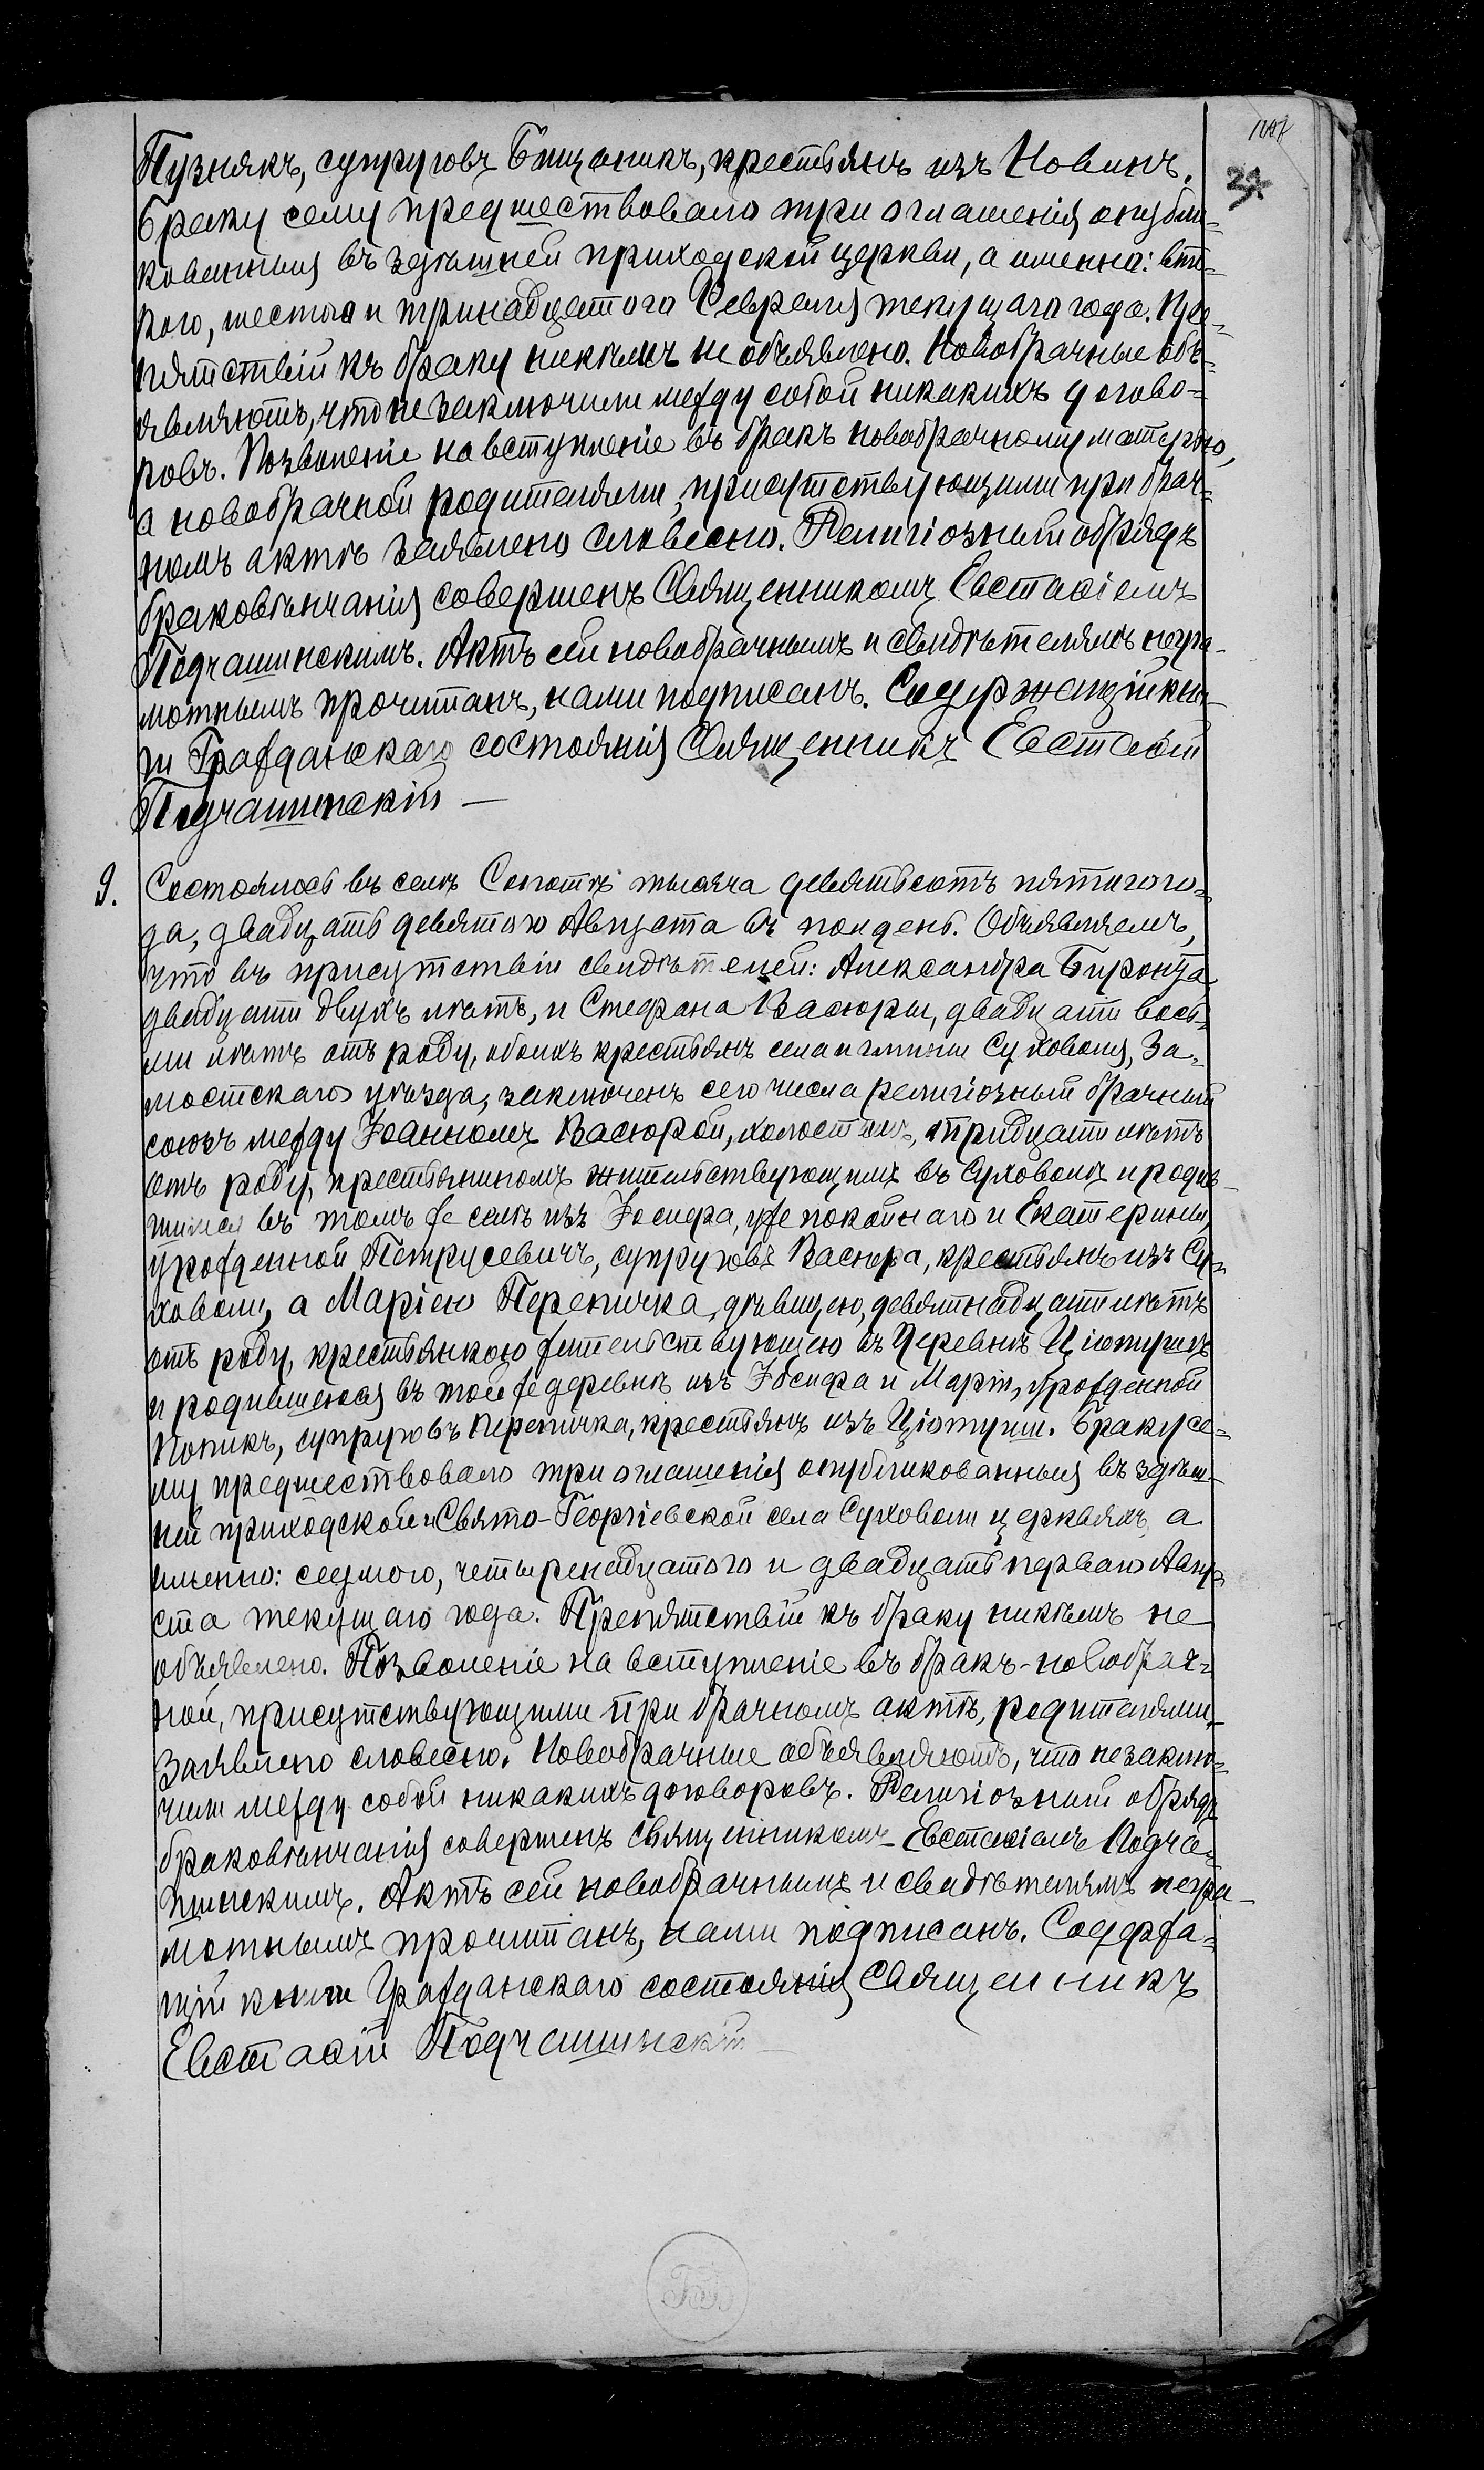 24
Пузнякъ, супруговъ Бищаникъ, крестьянъ изъ Новинъ.
Браку сему предшествовало три оглашенія опубли-
кованныя въ здѣшней приходской церкви, а именно: вто-
рого, шестого и тринадцатого Февраля текущаго года. Пре-
пятствій къ браку никѣмъ не объявлено. Новобрачные объ-
являютъ, что не заключили между собой никакихъ догово-
ровъ. Позволеніе на вступленіе въ бракъ новобрачному матерью,
а новобрачной родителями, присутствующими при брач-
номъ актѣ заявлено словесно. Религіозный обрядъ
браковѣнчанія совершенъ Священникомъ Евстаѳіемъ
Подчашинскимъ. Актъ сей новобрачнымъ и свидѣтелямъ негра-
мотнымъ прочитанъ, нами подписанъ. Содержащій кни-
ги Гражданскаго состоянія Священникъ Евстаѳій
Подчашинскій —
9. Состоялось въ селѣ Сопотѣ тысяча девятьсотъ пятого го-
да, двадцать девятого Августа въ полдень. Объявляемъ,
что въ присутствіи свидѣтелей: Александра Биронта
двадцати двухъ лѣтъ, и Стефана Васюры, двадцати вось-
ми лѣтъ отъ роду, обоихъ крестьянъ села и гмины Суховоля, За-
мостскаго уѣзда, заключенъ сего числа религіозный брачный
союзъ между Іоанномъ Васюрой, холостымъ, тридцати лѣтъ
отъ роду, крестьяниномъ жительствующимъ въ Суховолѣ и родив-
шимся въ томъ же селѣ изъ Іосифа, уже покойнаго и Екатерины,
урожденной Петрусевичъ, супруговъ Васюра, крестьянъ изъ Су-
ховоли, а Маріею Перепичка, дѣвицею, девятнадцати лѣтъ
отъ роду, крестьянкою жительствующею въ деревнѣ Цютушѣ
и родившеюся въ той же деревнѣ изъ Іосифа и Маріи, урожденной
Попикъ, супруговъ Перепичка, крестьянъ изъ Цютуши. Браку се-
му предшествовало три оглашенія опубликованныя въ здѣш-
ней приходской и Свято-Георгіевской села Суховоли церквяхъ, а
именно: седмого, четыренадцатого и двадцать перваго Авгу-
ста текущаго года. Препятствій къ браку никѣмъ не
объявлено. Позволеніе на вступленіе въ бракъ - новобрач-
ной, присутствующими при брачномъ актѣ, родителями,
заявлено словесно. Новобрачные объявляютъ, что не заклю-
чили между собой никакихъ договоровъ. Религіозный обрядъ
браковѣнчанія совершенъ Священникомъ Евстаѳіемъ Подча-
шинскимъ. Актъ сей новобрачнымъ и свидѣтелямъ негра-
мотнымъ прочитанъ, нами подписанъ. Содержа-
щій книги Гражданскаго состоянія Священникъ
Евстаѳій Подчашинскій